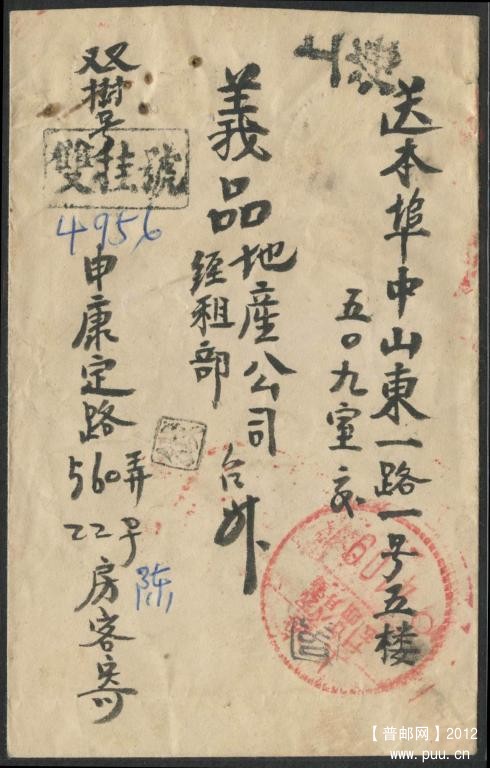 送本埠中山東一路一号五楼
五〇九室交
義品地產公司 台升
經租部
双掛号
雙挂號
4956
申康定路560弄22号房客寄
陈
【普邮网】2012
www.puu.cn